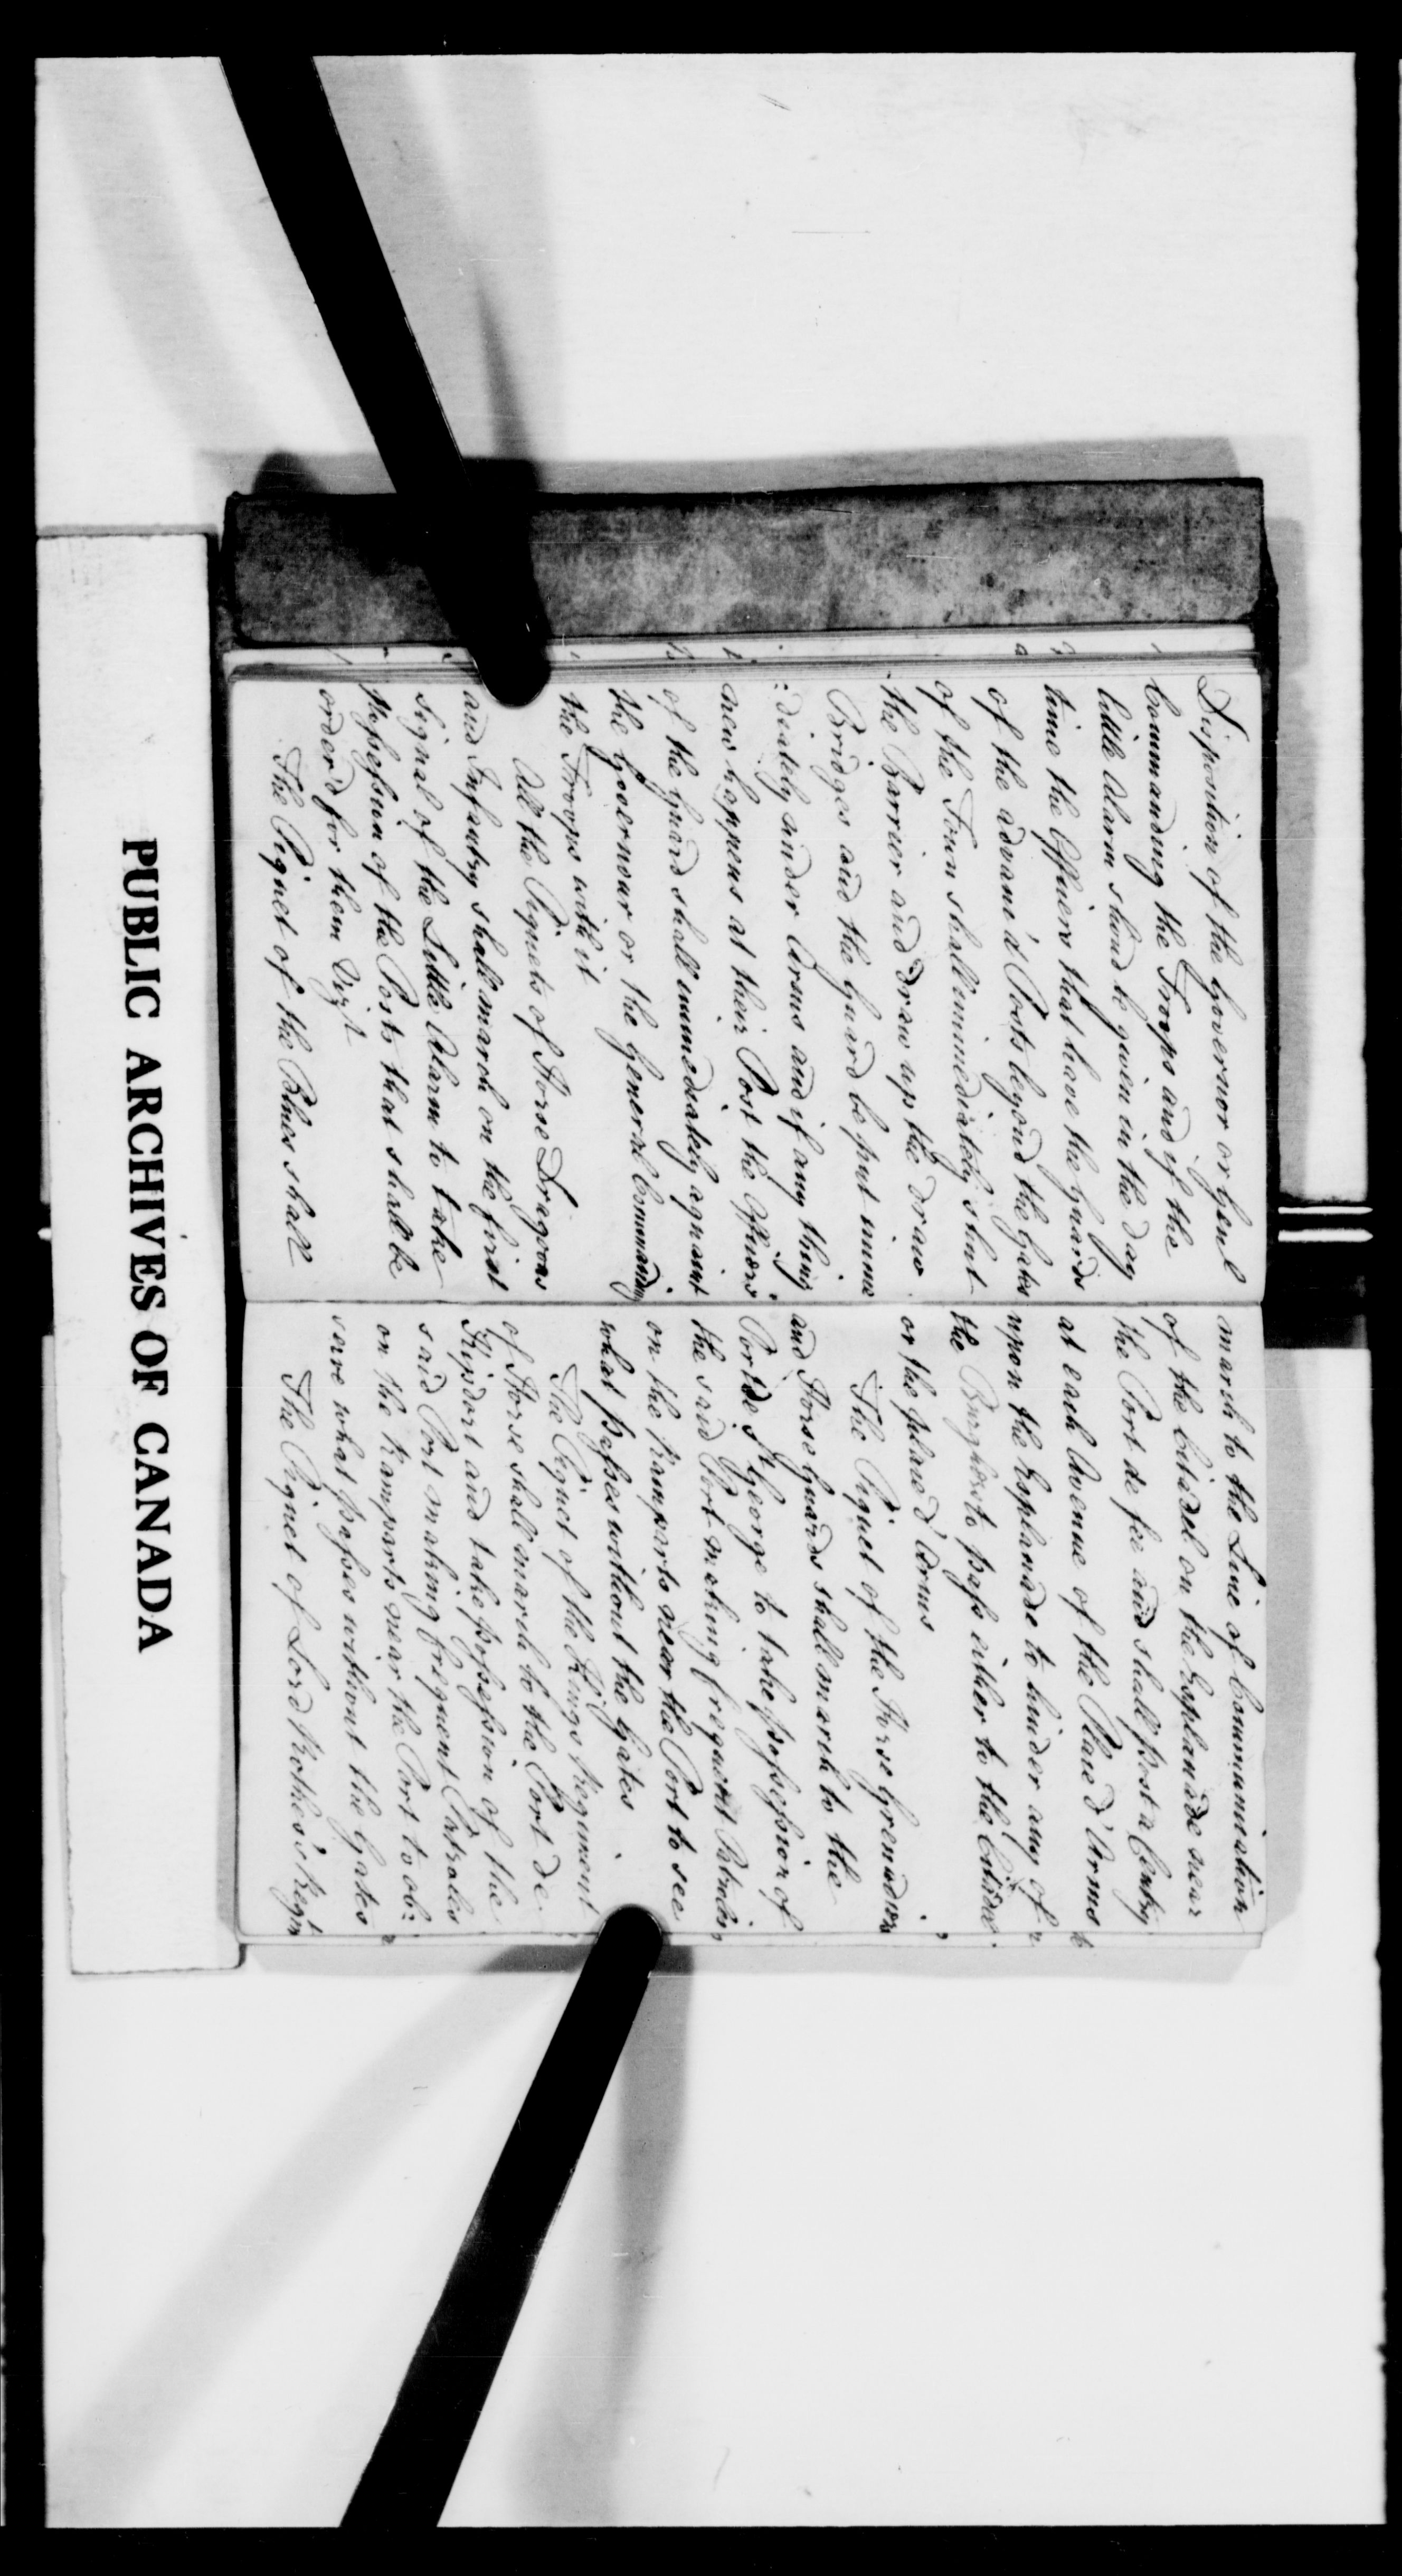 Disposition of the Governor or Genl
Commanding the Troops and if the
little Alarm shoud be given in the day
time the Officers that have the Guards
of the advanc'd Posts beyond the Gates
of the Town shall immediately shut
the Barrier and Draw up the draw
Bridges and the Guard be put imme
:diately under Arms and if any thing
new happens at their Post the Officers
of the Guard shall immediately aquaint
the Governour or the General Commandg
the Troops with it
All the Piquets of Horse Dragoons
and Infantry shall march on the first
Signal of the Little Alarm to take
Possession of the Posts that shall be
order'd for them Vizt
The Piquet of the Blues shall
march to the Line of Communication
of the Citadel on the Esplanade near
the Port de fee and shall post a Centry
at each Avenue of the Place d'Arms
upon the Esplanade to hinder any of
the Burghers to pass either to the Citidel
or the place d'Arms
The Piquet of the Horse Grenadiers
and Horse Guards shall march to the
Port de St George to take possession of
the said Port making frequent Patroles
on the Ramparts near the Port to see
what passes without the Gates
The Piquet of the Kings Regiment
of Horse shall march to the Port de
Kipdorp and take possession of the
said Port making frequent Patroles
on the Ramparts near the Port to ob:
serve what passes without the Gates
The Piquet of Lord Rothes's Regtn
PUBLIC ARCHIVES OF CANADA